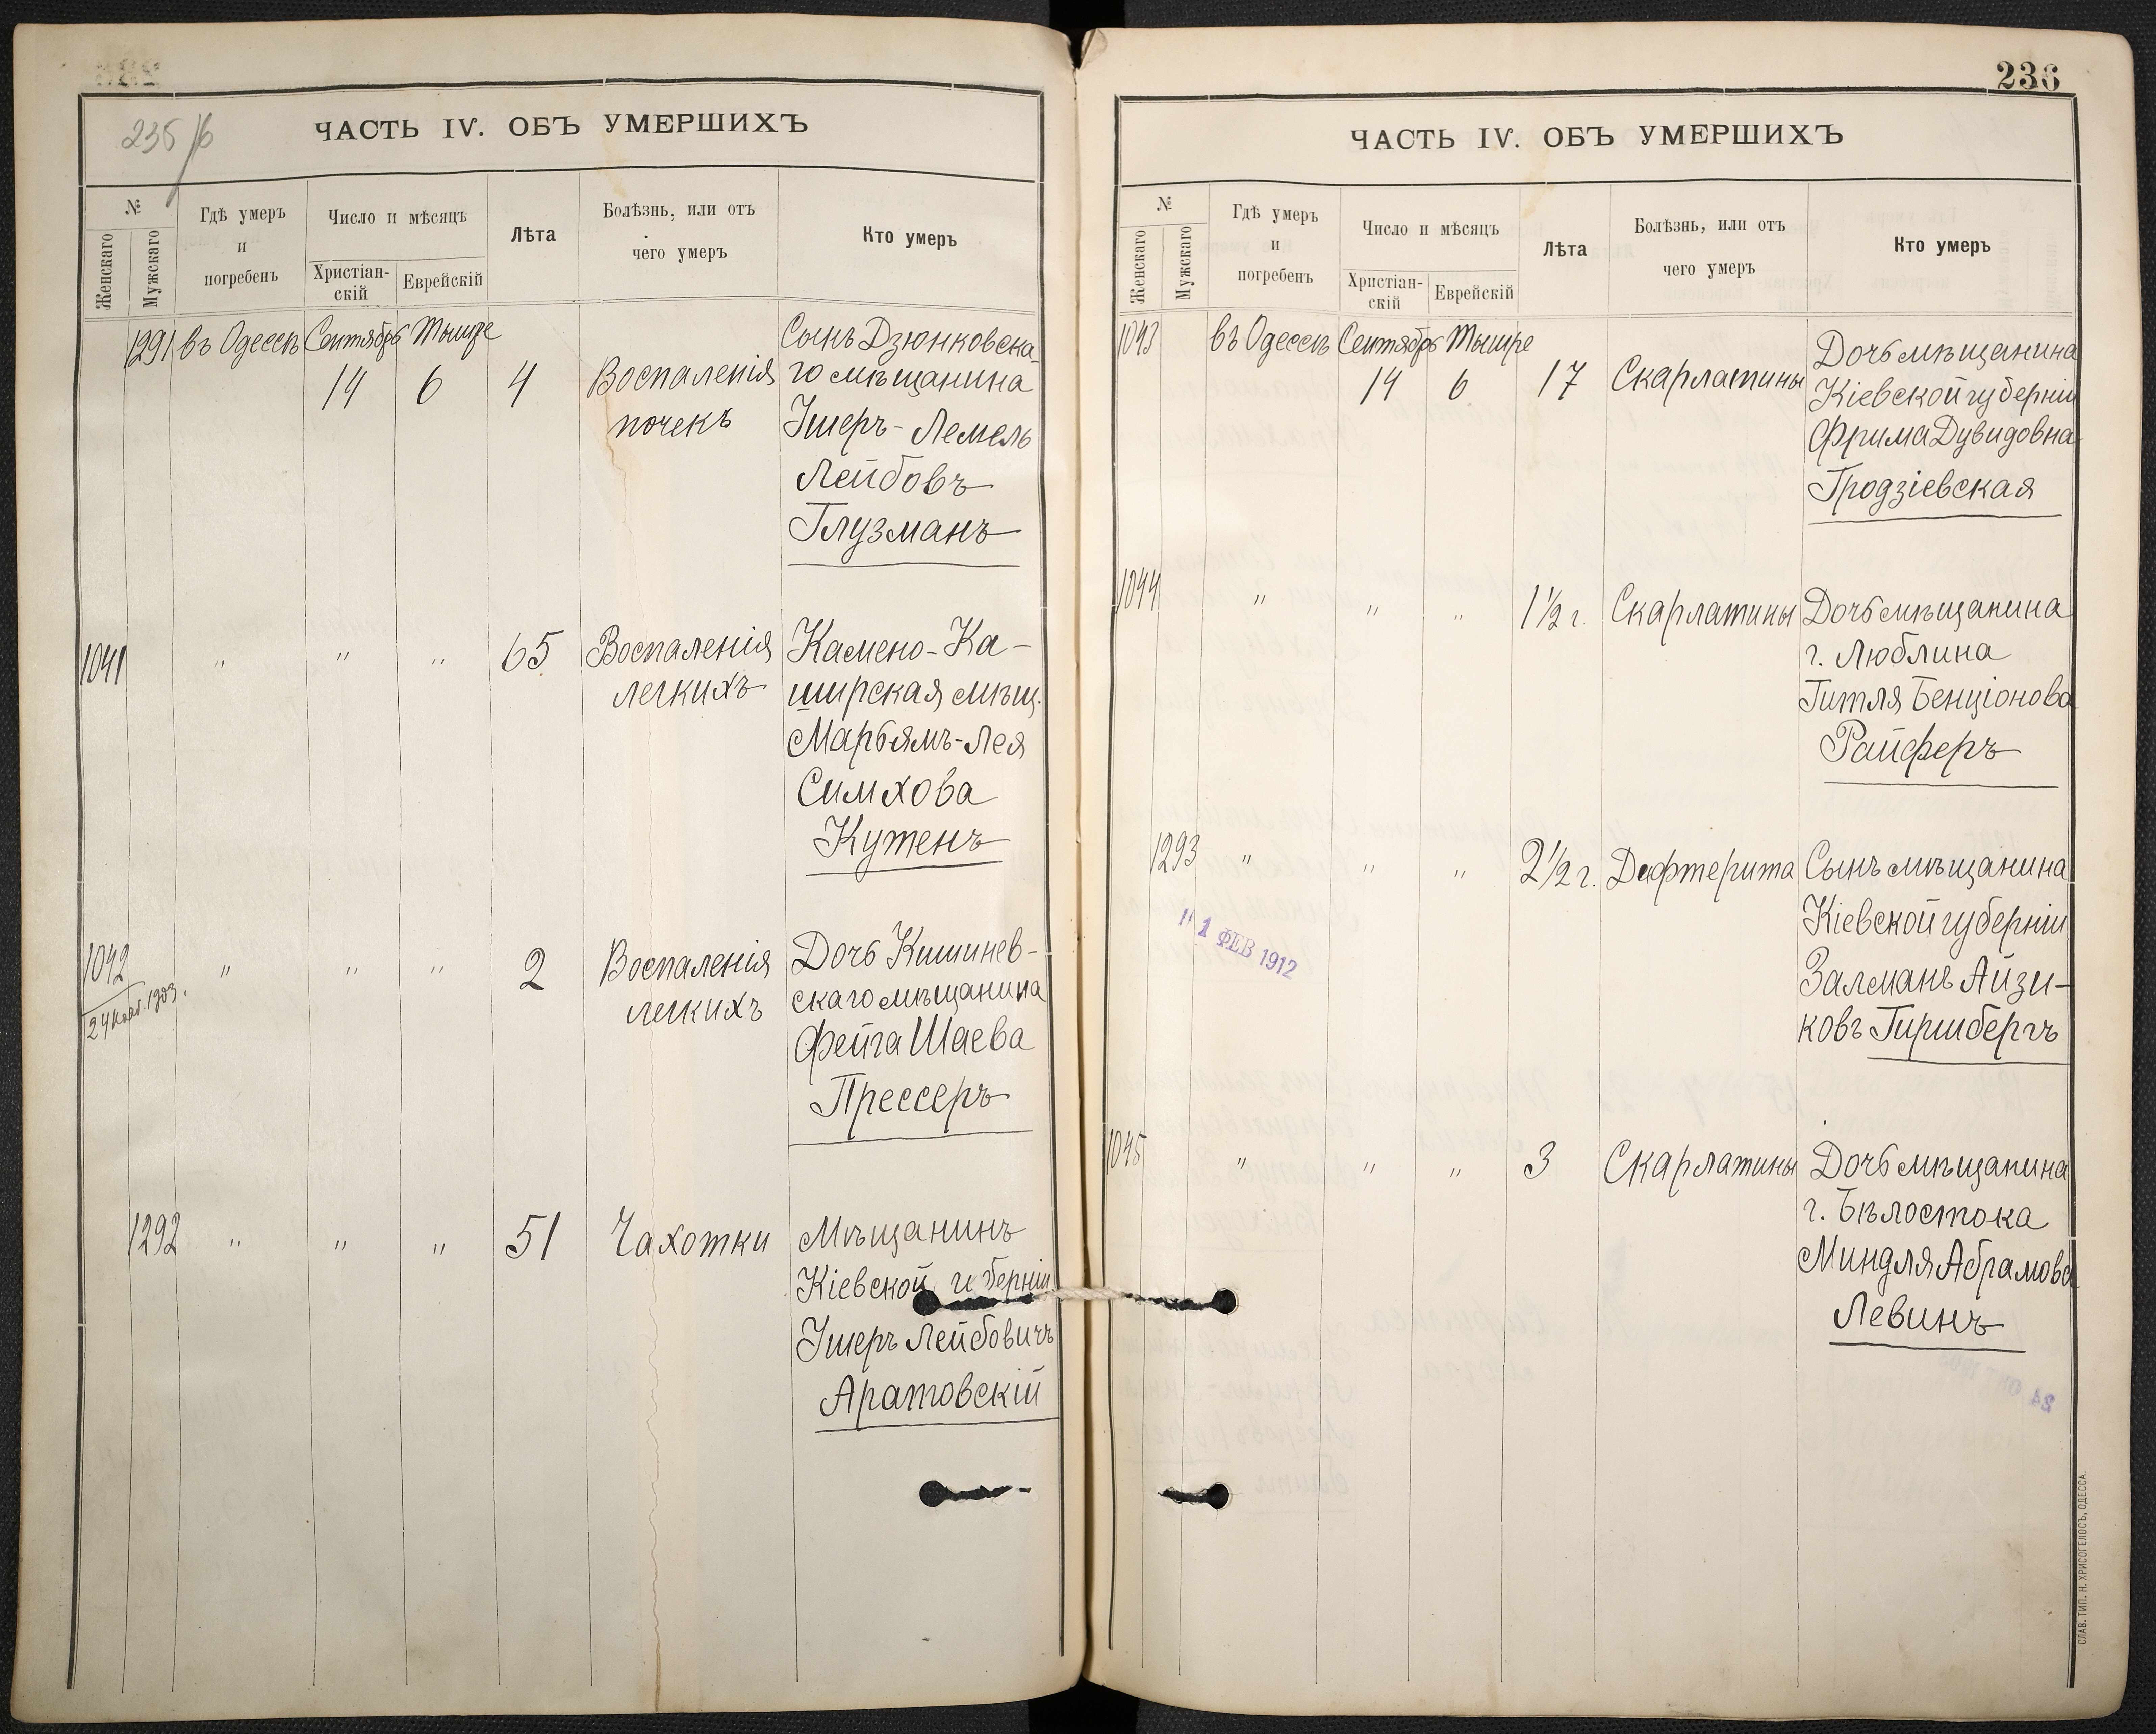 235/б
ЧАСТЬ IV. ОБЪ УМЕРШИХЪ
№
Женскаго
Мужскаго
Гдѣ умеръ
и
погребенъ
Число и мѣсяцъ
Христіан-
скій
Еврейскій
Лѣта
Болѣзнь, или отъ
чего умеръ
Кто умеръ
1291 въ Одессѣ Сентябрь Тышре
14 6 4 Воспаленія
почекъ
Сынъ Дзюнковска-
го мѣщанина
Ушеръ-Лемель
Лейбовъ
Глузманъ
1041 " " " 65 Воспаленія
легкихъ
Камено-Ка-
ширская мѣщ.
Марьямъ-Лея
Симхова
Кутенъ
1042
24 нояб. 1903.
" " " 2 Воспаленія
легкихъ
Дочь Кишинев-
скаго мѣщанина
Фейга Шаева
Прессеръ
1292 " " " 51 Чахотки
Мѣщанинъ
Кіевской губерніи
Ушеръ Лейбовичъ
Аратовскій
236
ЧАСТЬ IV. ОБЪ УМЕРШИХЪ
№
Женскаго
Мужскаго
Гдѣ умеръ
и
погребенъ
Число и мѣсяцъ
Христіан-
скій
Еврейскій
Лѣта
Болѣзнь, или отъ
чего умеръ
Кто умеръ
1043 въ Одессѣ Сентябрь Тышре
14 6 17 Скарлатины
Дочь мѣщанина
Кіевской губерніи
Фрима Дувидовна
Гродзіевская
1044 " " " 1½ г. Скарлатины
Дочь мѣщанина
г. Люблина
Гитля Бенціонова
Райферъ
1293 " " " 2½ г. Дифтерита
Сынъ мѣщанина
Кіевской губерніи
Залманъ Айзи-
ковъ Гиршбергъ
1 ФЕВ 1912
1045 " " " 3 Скарлатины
Дочь мѣщанина
г. Бѣлостока
Миндля Абрамова
Левинъ
СЛАВ. ТИП. Н. ХРИСОГЕЛОСЪ, ОДЕССА.